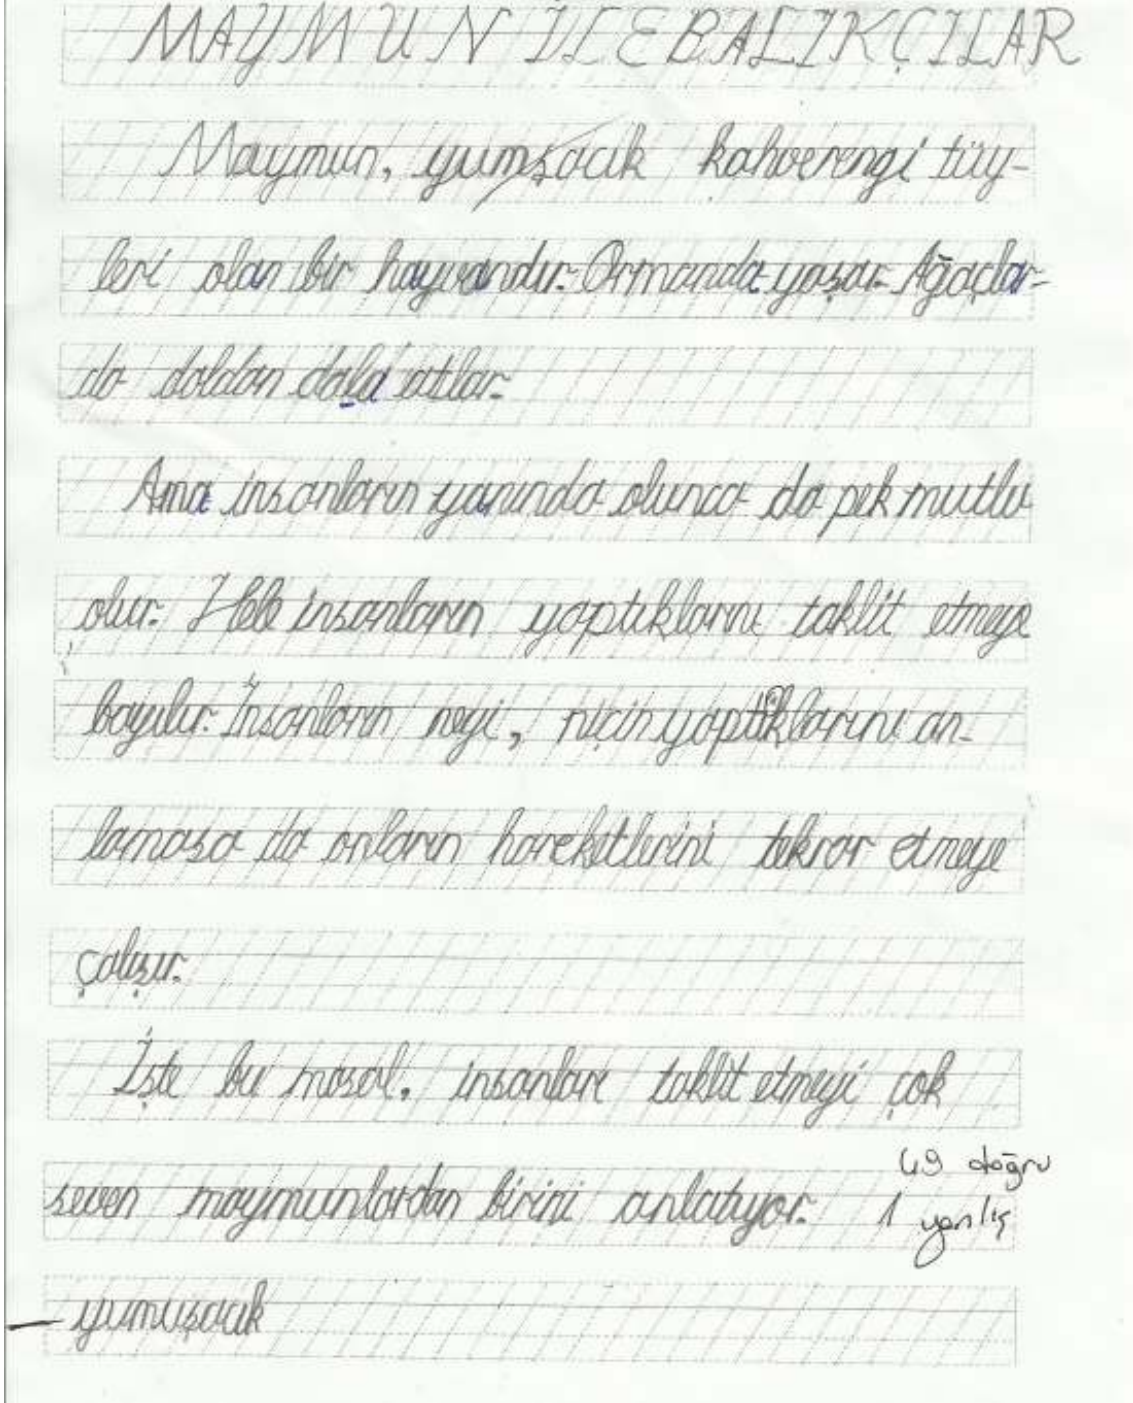 MAYMUN İLE BALIKÇILAR
Maymun, yumşacık kahverengi tüy-
leri olan bir hayvandır. Ormanda yaşar. Ağaçlar-
da daldan dala atlar.
Ama insanların yanında olunca da pek mutlu
olur. Hele insanların yaptıklarını taklit etmeye
bayılır. İnsanların neyi, niçin yaptıklarını an-
lamasa da onların hareketlerini tekrar etmeye
çalışır.
İşte bu masal, insanları taklit etmeyi çok
49 doğru
seven maymunlardan birini anlatıyor. 1 yanlış
- yumuşacık